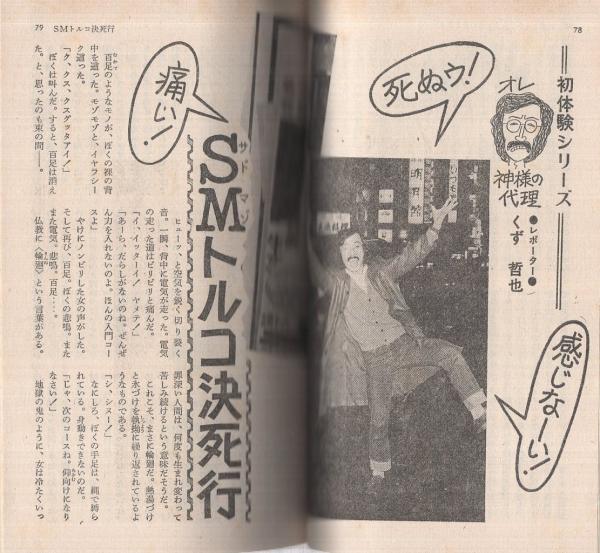 78
初体験シリーズ
オレ
神様の
代理
●レポーター●
くず 哲也
死ぬゥ!
感じなーい!
79 SMトルコ決死行
痛い!
SMトルコ決死行
サド マゾ
百足のようなモノが、ぼくの裸の背
むかで
中を這った。モゾモゾと、イヤラシー
ク這った。
「ク、クス、クスグッタアイ!」
ぼくは叫んだ。すると、百足は消え
た。と、思ったのも束の間――。
ヒューッ、と空気を鋭く切り裂く
音。一瞬、背中に電気が走った。電気
の走った道はビリビリと痛んだ。
「イ、イッターイ! ヤメテ!」
「あーら、だらしがないのね。ぜんぜ
ん力を入れないのよ。ほんの入門コー
スよ」
やけにノンビリした女の声がした。
そして再び、百足。ぼくの悲鳴。また
また電気。悲鳴。百足……。
仏教に〈輪廻〉という言葉がある。
罪深い人間は、何度も生まれ変わって
苦しみ続けるという意味だそうだ。
これこそ、まさに輪廻だ。熱湯づけ
と氷づけを執拗に繰り返されているよ
うなものである。
「シ、シヌー!」
なにしろ、ぼくの手足は、縄で縛ら
れている。身動きできないのだ。
「じゃ、次のコースね。仰向けになり
なさい!」
地獄の鬼のように、女は冷たくいっ